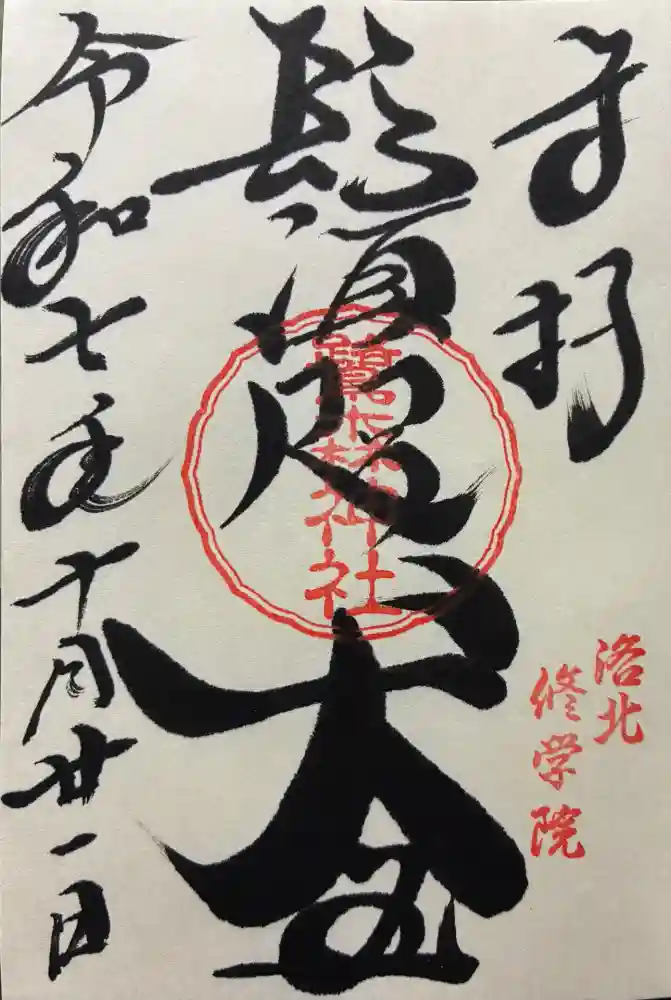 奉拝
洛北
修学院
鬚
鷺森神社
令和七年十月廿一日